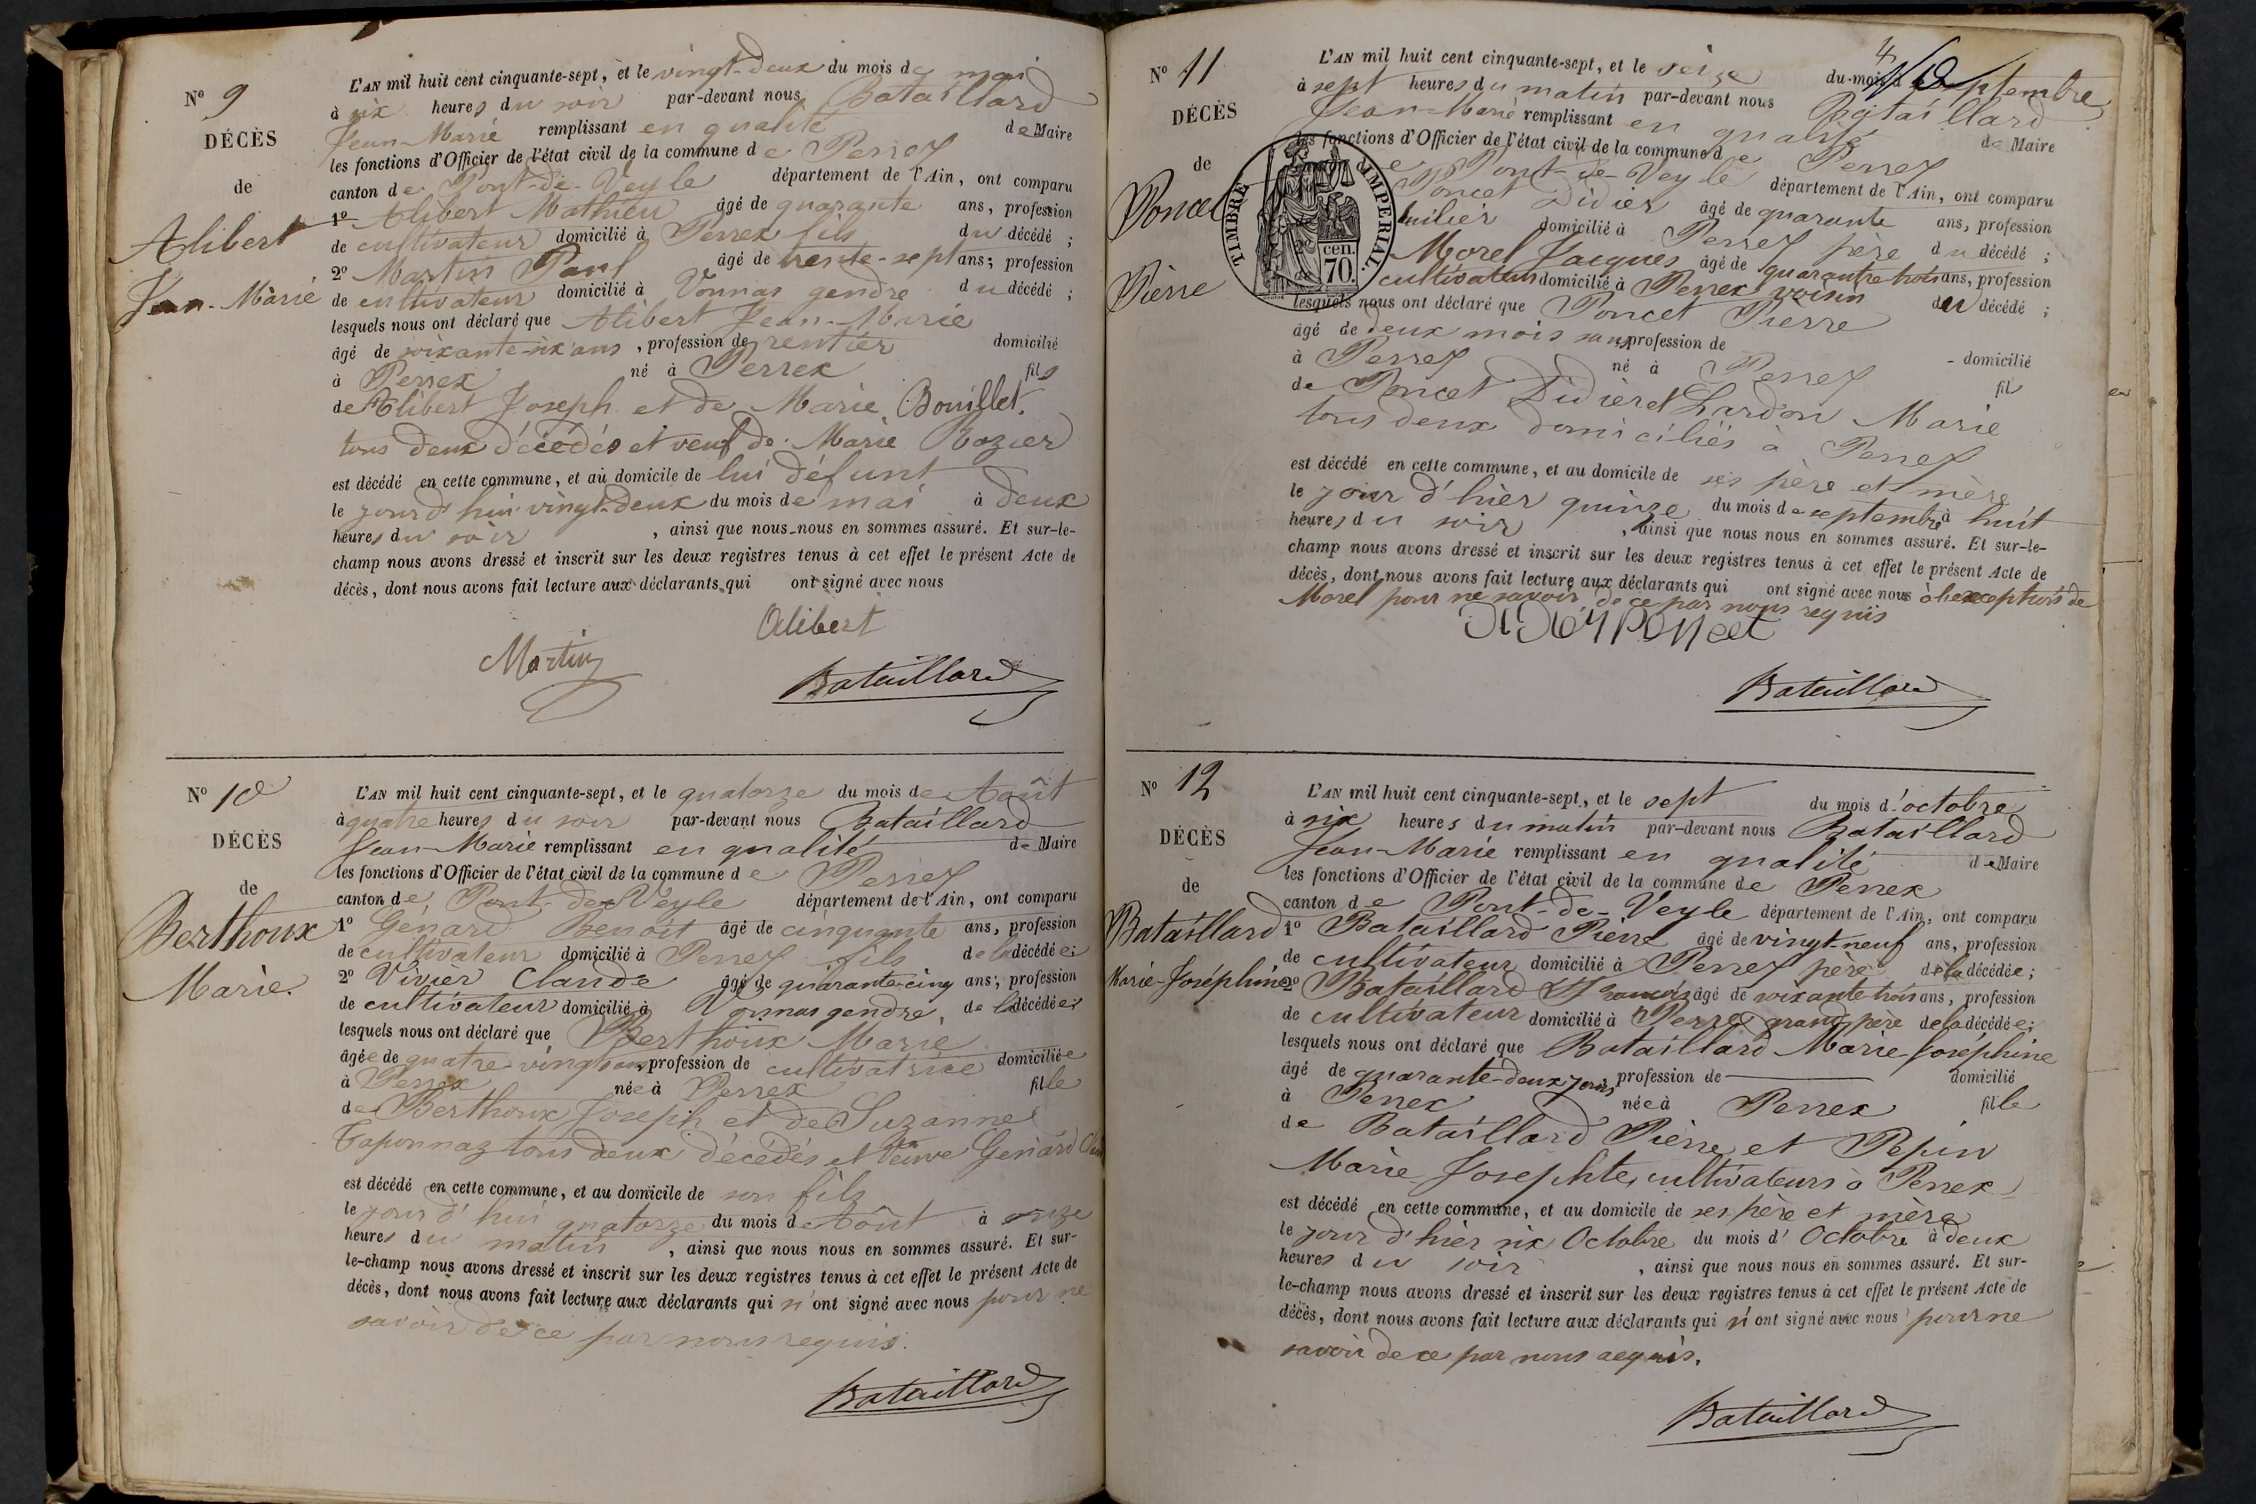 N° 9
DÉCÈS
de
Alibert
Jean-Marie
L'AN mil huit cent cinquante-sept, et le vingt-deux du mois de mai
à six heures du soir par-devant nous Bataillard
Jean-Marie remplissant en qualité de Maire
les fonctions d'Officier de l'état civil de la commune de Perrex
canton de Pont-de-Veyle département de l'Ain, ont comparu
1° Alibert Mathieu âgé de quarante ans, profession
de cultivateur domicilié à Perrex fils du décédé ;
2° Martin Paul âgé de trente-sept ans; profession
de cultivateur domicilié à Vonnas gendre du décédé ;
lesquels nous ont déclaré que Alibert Jean-Marie
âgé de soixante-six ans, profession de rentier domicilié
à Perrex né à Perrex fils
de Alibert Joseph et de Marie Bouillet.
tous deux décédés et veuf de Marie Rozier
est décédé en cette commune, et au domicile de lui défunt
le jourd'hui vingt-deux du mois de mai à deux
heures du soir, ainsi que nous nous en sommes assuré. Et sur-le-
champ nous avons dressé et inscrit sur les deux registres tenus à cet effet le présent Acte de
décès, dont nous avons fait lecture aux déclarants qui ont signé avec nous
Alibert
Martin
Bataillard
N° 10
DÉCÈS
de
Berthoux
Marie.
L'AN mil huit cent cinquante-sept, et le quatorze du mois de Août
à quatre heures du soir par-devant nous Bataillard
Jean-Marie remplissant en qualité de Maire
les fonctions d'Officier de l'état civil de la commune de Perrex
canton de Pont-de-Veyle département de l'Ain, ont comparu
1° Génard Benoit âgé de cinquante ans, profession
de cultivateur domicilié à Perrex fils de la décédée;
2° Vivier Claude âgé de quarante-cinq ans; profession
de cultivateur domicilié à Vonnas gendre, de la décédée;
lesquels nous ont déclaré que Berthoux Marie
âgée de quatre vingt ans, profession de cultivatrice domiciliée
à Perrex née à Perrex fille
de Berthoux Joseph et de Suzanne
Taponnaz tous deux décédés et veuve Génard
est décédé en cette commune, et au domicile de son fils
le jourd'hui quatorze du mois de Août à onze
heures du matin, ainsi que nous nous en sommes assuré. Et sur-
le-champ nous avons dressé et inscrit sur les deux registres tenus à cet effet le présent Acte de
décès, dont nous avons fait lecture aux déclarants qui n'ont signé avec nous pour ne
savoir de ce par nous requis.
Bataillard
4
N° 11
DÉCÈS
de
Poncet
Pierre
TIMBRE IMPERIAL.
cen.
70.
L'AN mil huit cent cinquante-sept, et le seize du mois de septembre
à sept heures du matin par-devant nous Bataillard
Jean-Marie remplissant en qualité de Maire
les fonctions d'Officier de l'état civil de la commune de Perrex
de Pont-de-Veyle département de l'Ain, ont comparu
Poncet Didier âgé de quarante ans, profession
tuilier domicilié à Perrex père du décédé ;
Morel Jacques âgé de quarante trois ans, profession
cultivateur domicilié à Perrex voisin du décédé ;
lesquels nous ont déclaré que Poncet Pierre
âgé de deux mois sans profession de - domicilié
à Perrex né à Perrex fil
de Poncet Didier et Lardon Marie
tous deux domiciliés à Perrex
est décédé en cette commune, et au domicile de ses père et mère
le jour d'hier quinze du mois de septembre à huit
heures du soir, ainsi que nous nous en sommes assuré. Et sur-le-
champ nous avons dressé et inscrit sur les deux registres tenus à cet effet le présent Acte de
décès, dont nous avons fait lecture aux déclarants qui ont signé avec nous à l'exception de
Morel pour ne savoir de ce par nous requis
Didier Poncet
Bataillard
N° 12
DÉCÈS
de
Bataillard
Marie-Joséphine
L'AN mil huit cent cinquante-sept, et le sept du mois d'octobre
à six heures du matin par-devant nous Bataillard
Jean-Marie remplissant en qualité de Maire
les fonctions d'Officier de l'état civil de la commune de Perrex
canton de Pont-de-Veyle département de l'Ain, ont comparu
1° Bataillard Pierre âgé de vingt-neuf ans, profession
de cultivateur domicilié à Perrex père de la décédée;
2° Bataillard François âgé de soixante trois ans, profession
de cultivateur domicilié à Perrex grand père de la décédée;
lesquels nous ont déclaré que Bataillard Marie-Joséphine
âgé de quarante-deux jours profession de domicilié
à Perrex née à Perrex fille
de Bataillard Pierre et Pepin
Marie Josephte, cultivateurs à Perrex
est décédé en cette commune, et au domicile de ses père et mère
le jour d'hier six Octobre du mois d'Octobre à deux
heures du soir, ainsi que nous nous en sommes assuré. Et sur-
le-champ nous avons dressé et inscrit sur les deux registres tenus à cet effet le présent Acte de
décès, dont nous avons fait lecture aux déclarants qui n'ont signé avec nous pour ne
savoir de ce par nous requis.
Bataillard